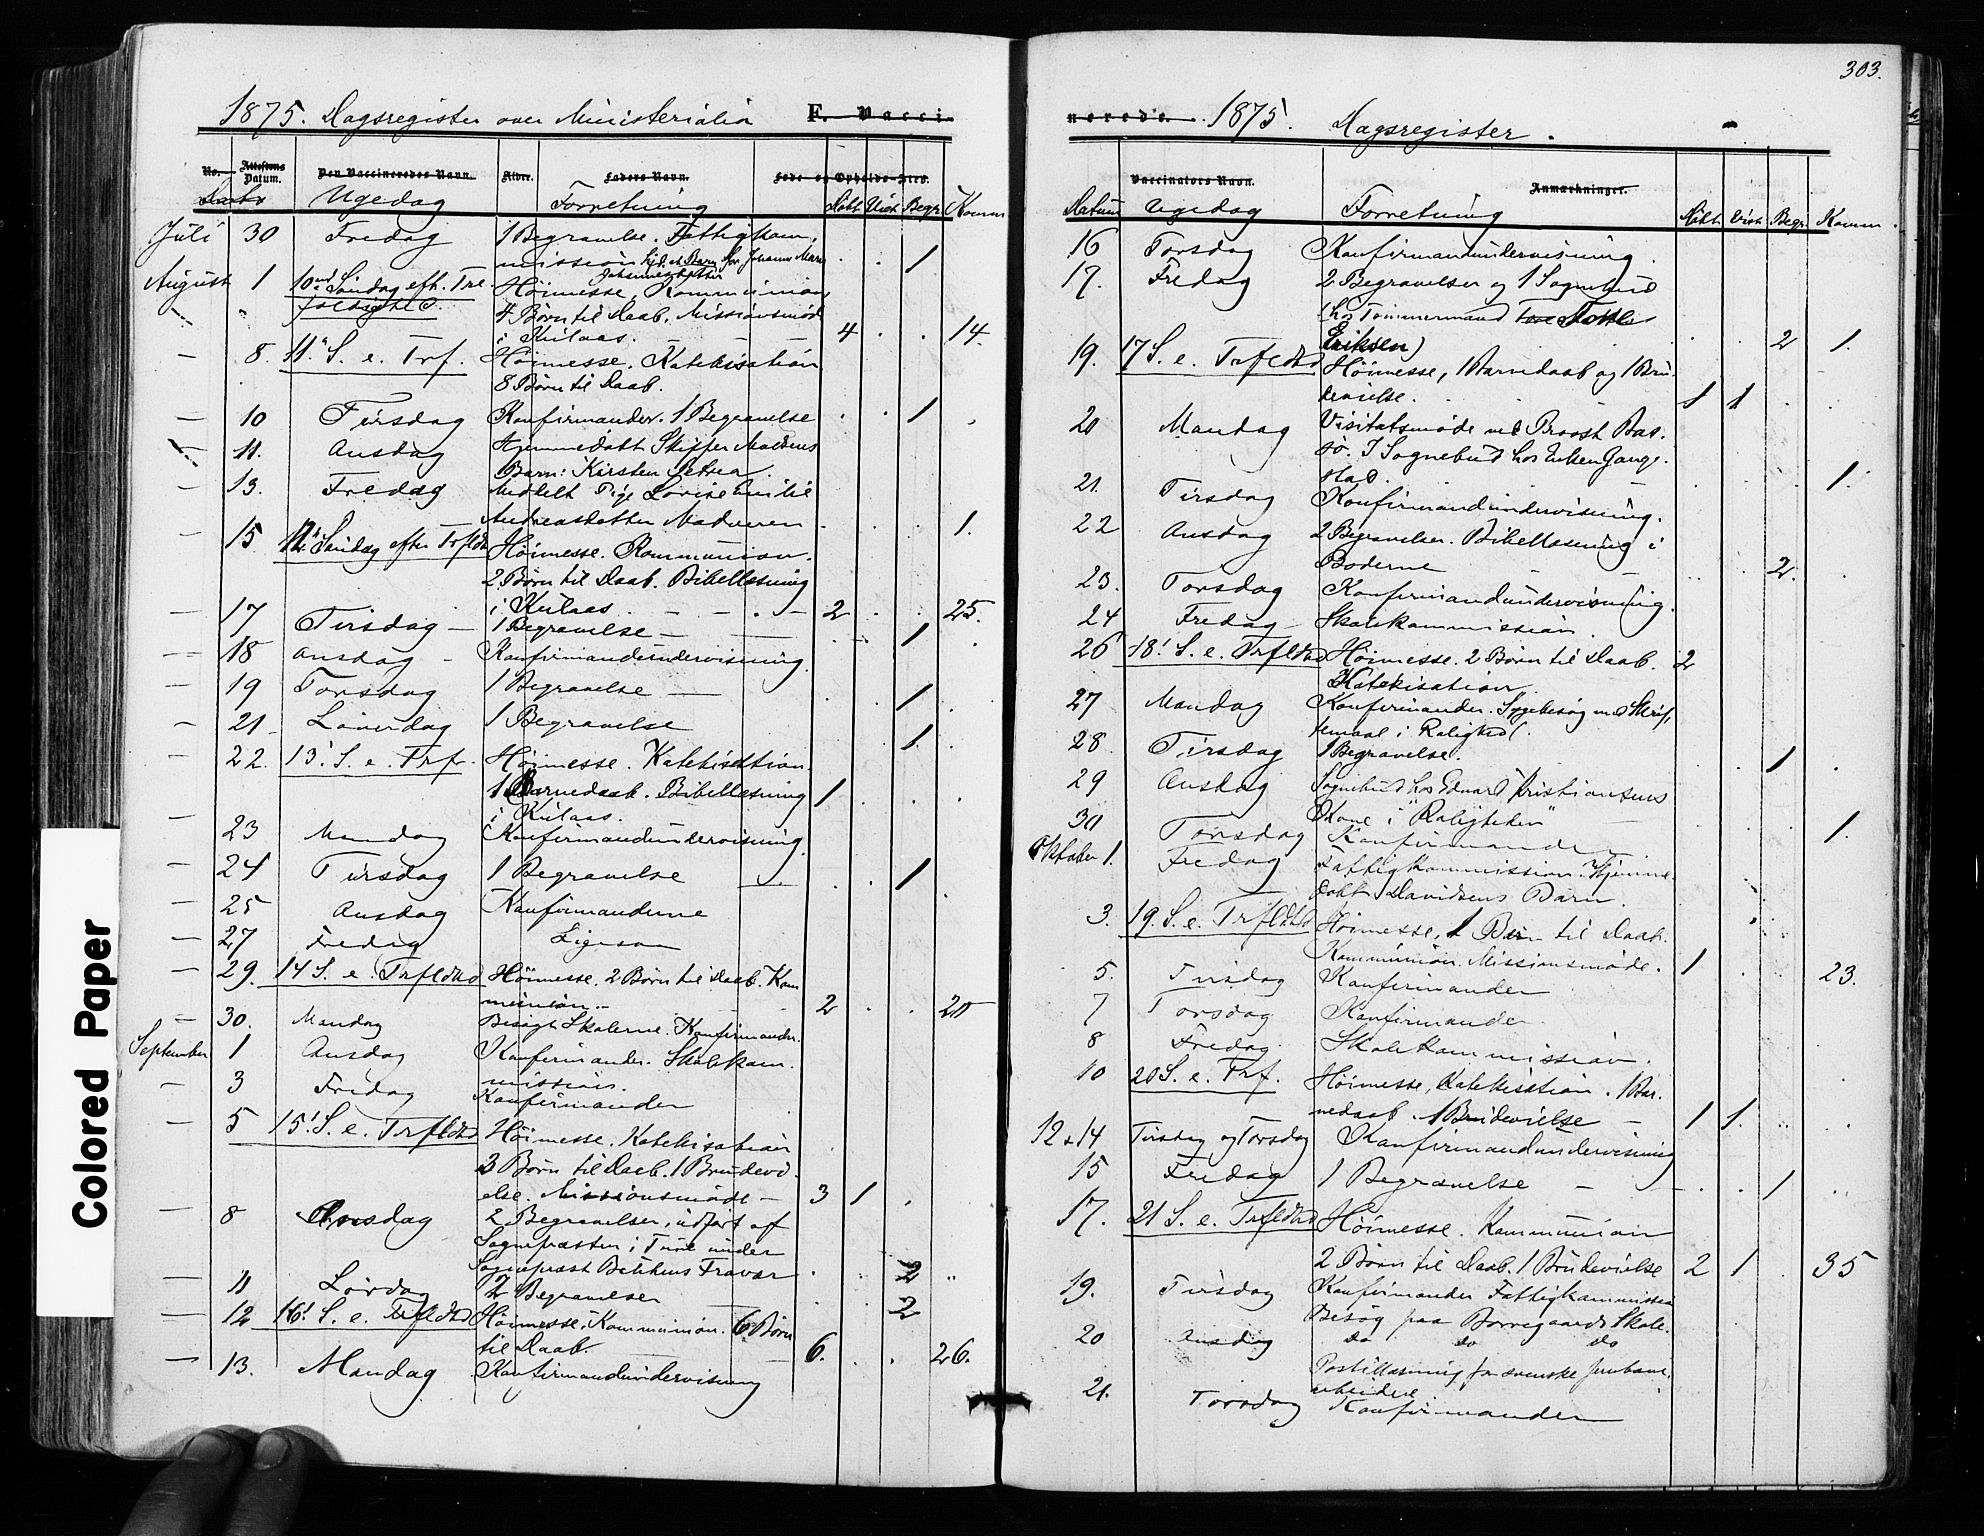 303.
1875. Dagsregister over Ministerialia F. Vacci-
No. Attestens Datum. Den Vaccineredes Navn. Alder. Faders Navn. Føde- og Opholds-Sted.
Ugedag Forretning Døbt Viet Begr. Komm.
Juli 30 Fredag 1 Begravelse. Fattigkom-
mission 1
August 1 10nd Søndag eft. Tre- Høimesse. Kommunion
foldighed. 4 Børn til Daab. Missionsmøde
i Kulaas. 4 14.
8. 11. S. e. Trf. Høimesse. Katekisation
8 Børn til Daab.
10 Tirsdag Konfirmander. 1 Begravelse 1
11. Onsdag Hjemmedøbt Skipper Madsens
Barn: Kirsten Petrea.
13. Fredag Meddelt Pige Lovise Emilie
Andreasdatter 1.
15. 12. Søndag efter Trfldhd Høimesse. Kommunion.
2 Børn til Daab. Bibellæsning
i Kulaas. 2 25.
17 Tirsdag 1 Begravelse 1
18 Onsdag Konfirmandundervisning.
19 Torsdag 1 Begravelse 1
21 Løverdag 1 Begravelse 1
22. 13. S. e. Trf. Høimesse. Katekisation.
1 Barnedaab. Bibellæsning 1
i Kulaas.
23 Mandag Konfirmandundervisning.
24 Tirsdag 1 Begravelse 1
25 Onsdag Konfirmanderne
27 Fredag Ligesaa
29. 14 S. e. Trfldhd Høimesse. 2 Børn til Daab. Kom
munion. 2 20
30. Mandag Besøgt Skolerne. Konfirmander.
September 1 Onsdag Konfirmander. Skolekom-
mission.
3 Fredag Konfirmander
5 15. S. e. Trfldhd Høimesse. Katekisation
3 Børn til Daab. 1 Brudevi-
else. Missionsmøde 3 1
8 Onsdag 2 Begravelser, udført af
Sognepræsten i Tune under
Sognepræst Fravær 2
11 Lørdag 2 Begravelser 2
12 16. S. e. Trfldhd Høimesse, Kommunion. 6 Børn
til Daab 6. 26.
13. Mandag Konfirmandundervisning
nerede. 1875. Dagsregister.
Vaccinators Navn. Anmærkninger.
Datum Ugedag Forretning Døbt Viet Begr. Komm.
16 Torsdag Konfirmandundervisning.
17. Fredag 2 Begravelser og 1 Sognebud
(hos Tømmermand
Eriksen) 2 1.
19. 17 S. e. Trfldhd Høimesse, 1 Barnedaab og 1 Bru-
devielse. 1 1
20 Mandag Visitatsmøde ved Provst Bas-
sø. 1 Sognebud hos Enken Gange-
stad. 1.
21. Tirsdag Konfirmandundervisning.
22 Onsdag 2 Begravelser. Bibellæsning i
Boderne 2.
23. Torsdag Konfirmandundervisning.
24 Fredag Skolekommission.
26 18. S. e. Trfldhd Høimesse. 2 Børn til Daab. 2
Katekisation.
27 Mandag Konfirmander. Sygebesøg med Skrif-
temaal i Rolighed.
28. Tirsdag 1 Begravelse. 1
29 Onsdag Sognebud hos Edvard Kristiansens
Kone i "Roligheden" 1.
30 Torsdag Konfirmander
Oktober 1. Fredag Fattigkommission. Hjemme-
døbt Davidsens Barn.
3. 19. S. e. Trfldhd Høimesse, 1 Barn til Daab.
Kommunion. Missionsmøde. 1 23.
5. Tirsdag Konfirmander
7 Torsdag Konfirmander.
8 Fredag Skolekommission.
10 20 S. e. Trf. Høimesse, Katekisation. 1 Bar-
nedaab. 1 Brudevielse 1 1.
12 & 14 Tirsdag og Torsdag Konfirmandundervisning
15 Fredag 1 Begravelse 1
17. 21 S. e. Trfldhd Høimesse. Kommunion
2 Børn til Daab. 1 Brudevielse 2 1 35
19. Tirsdag Konfirmander Fattigkommission
Besøg paa Borregaards Skole.
20 Onsdag Do Do Do
Postillæsning for svenske Jernbane-
arbeidere.
21. Torsdag Konfirmander
Colored Paper